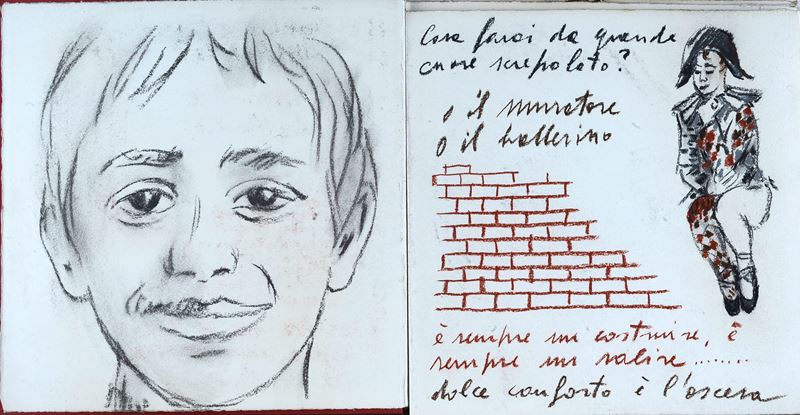 Cosa farai da grande
cuore screpolato?
o il muratore
o il ballerino
è sempre un costruire, è
sempre un salire ........
dolce conforto è l'ascesa